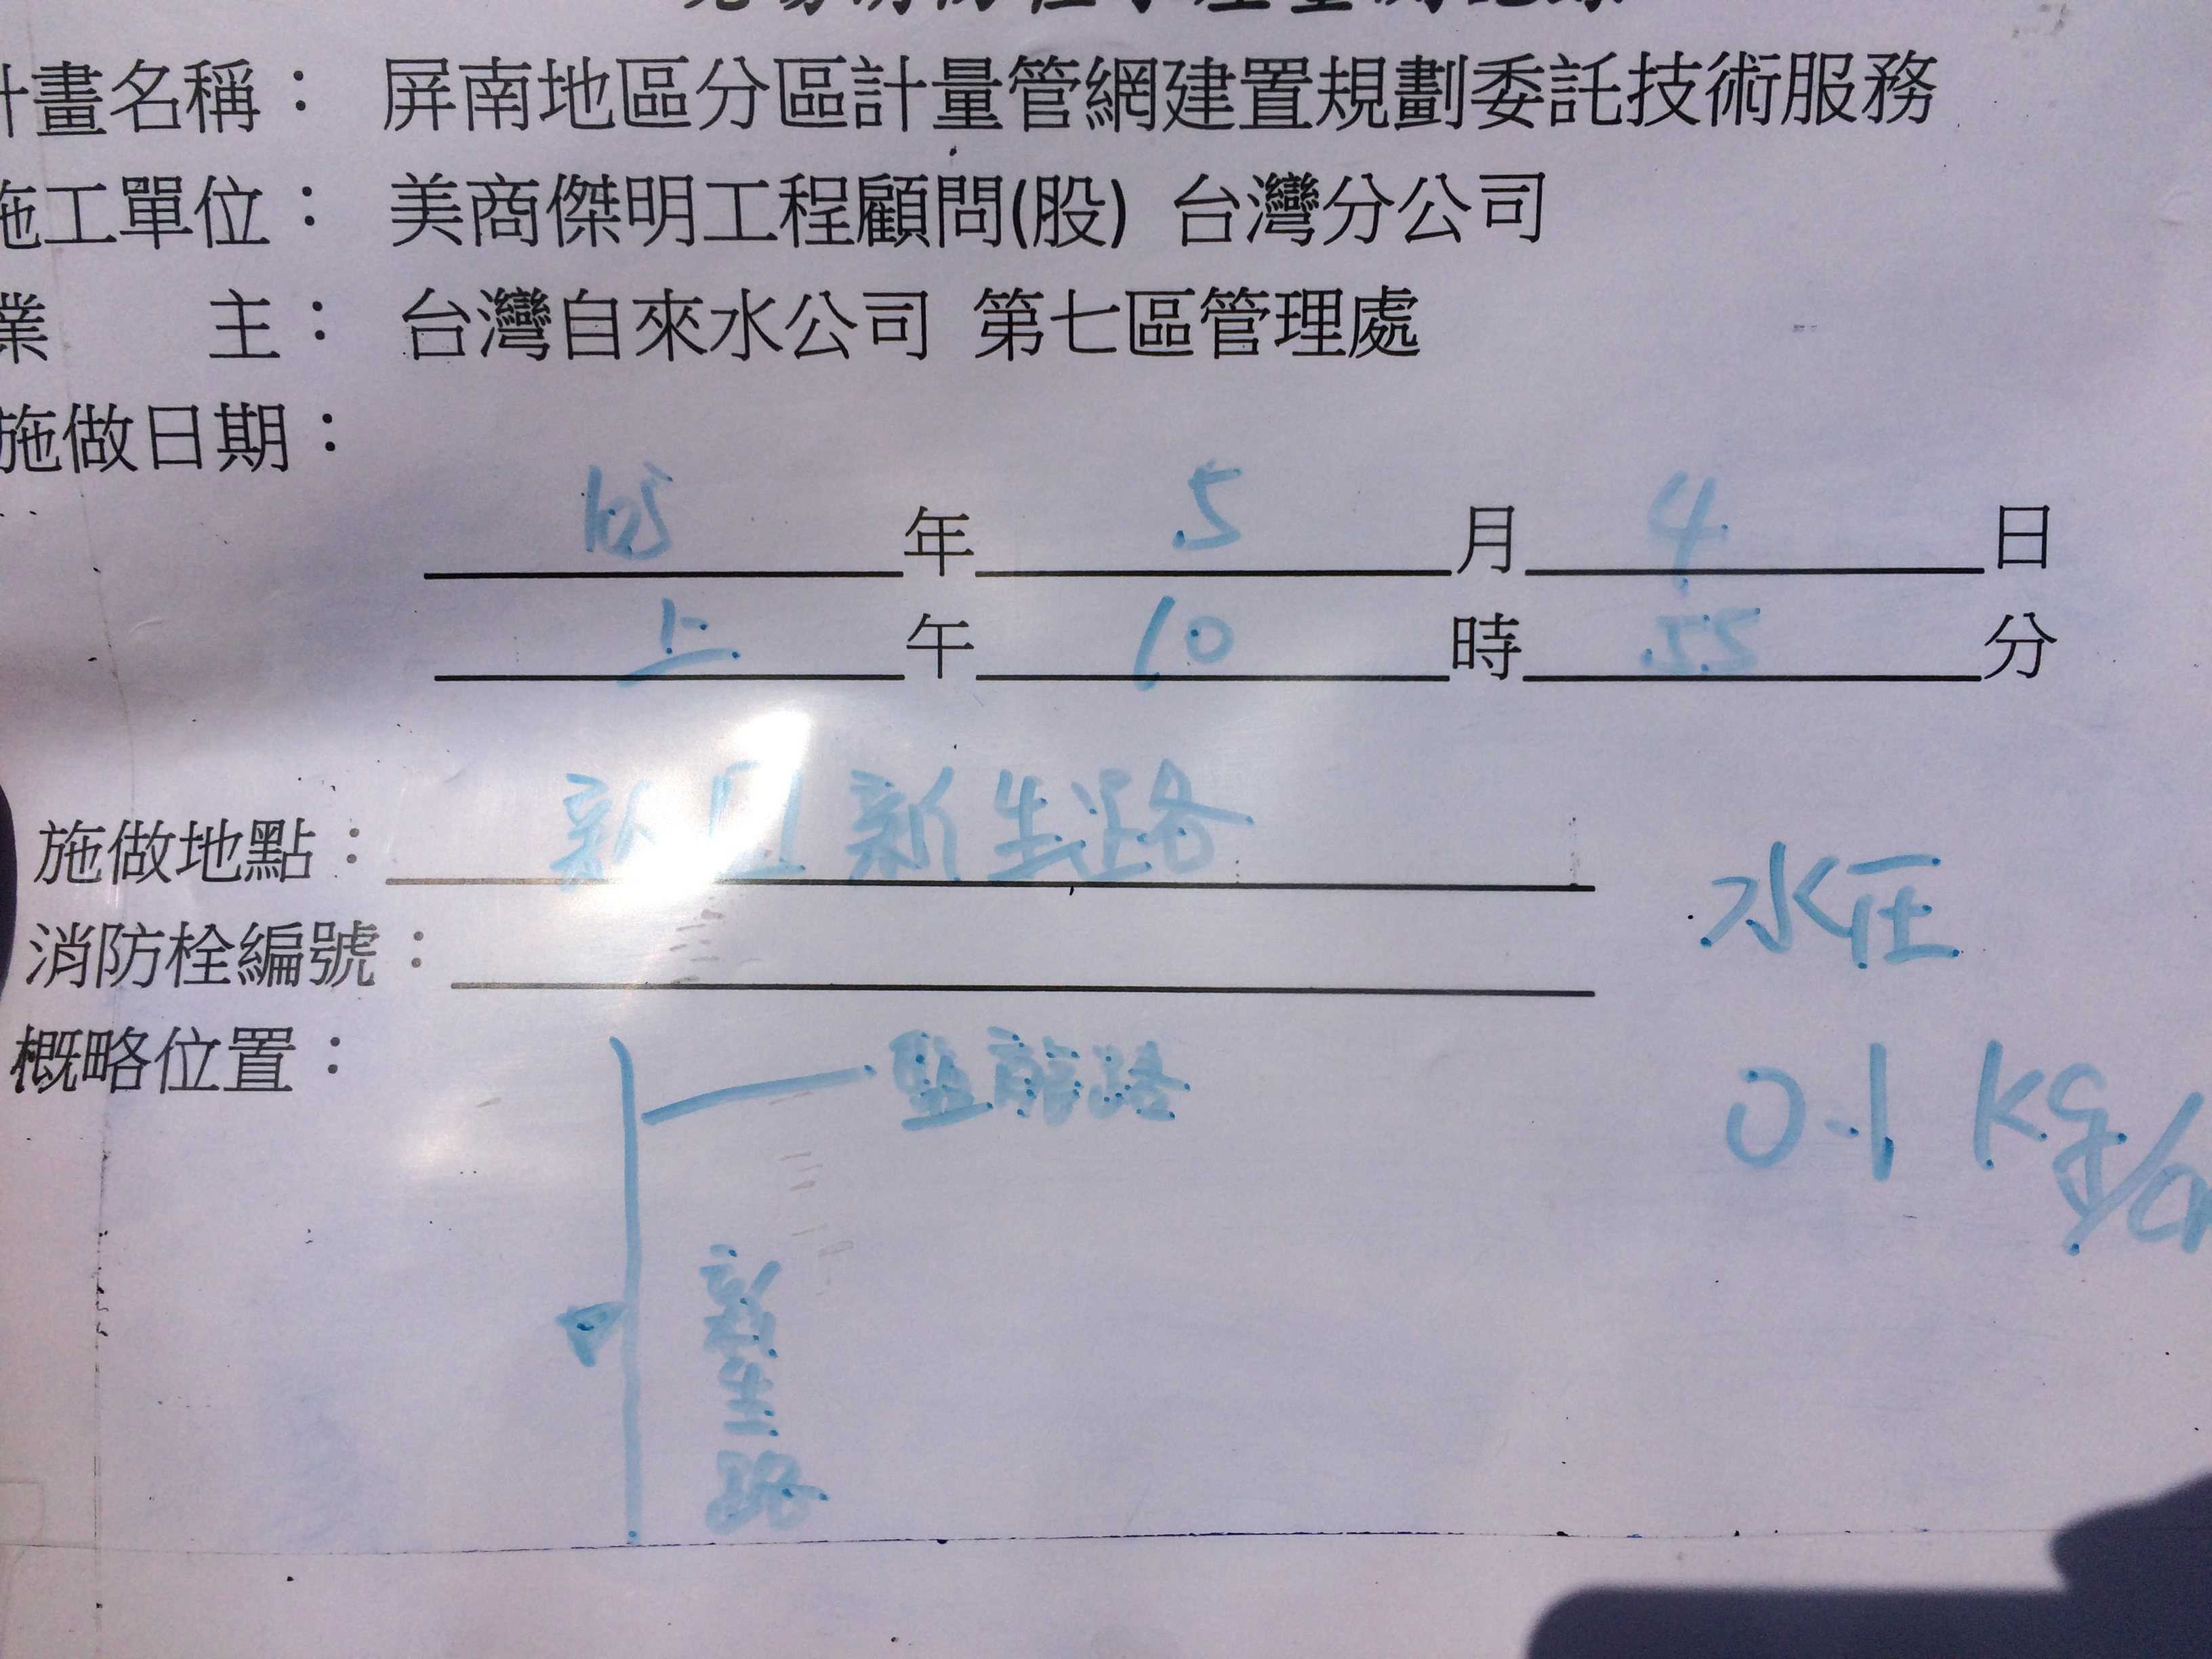 計畫名稱： 屏南地區分區計量管網建置規劃委託技術服務
施工單位： 美商傑明工程顧問(股) 台灣分公司
業 主： 台灣自來水公司 第七區管理處
施做日期：
105 年 5 月 4 日
上 午 10 時 55 分
施做地點： 新 新生路
消防栓編號：
水压
概略位置：
路
0.1 kgf/
新生路